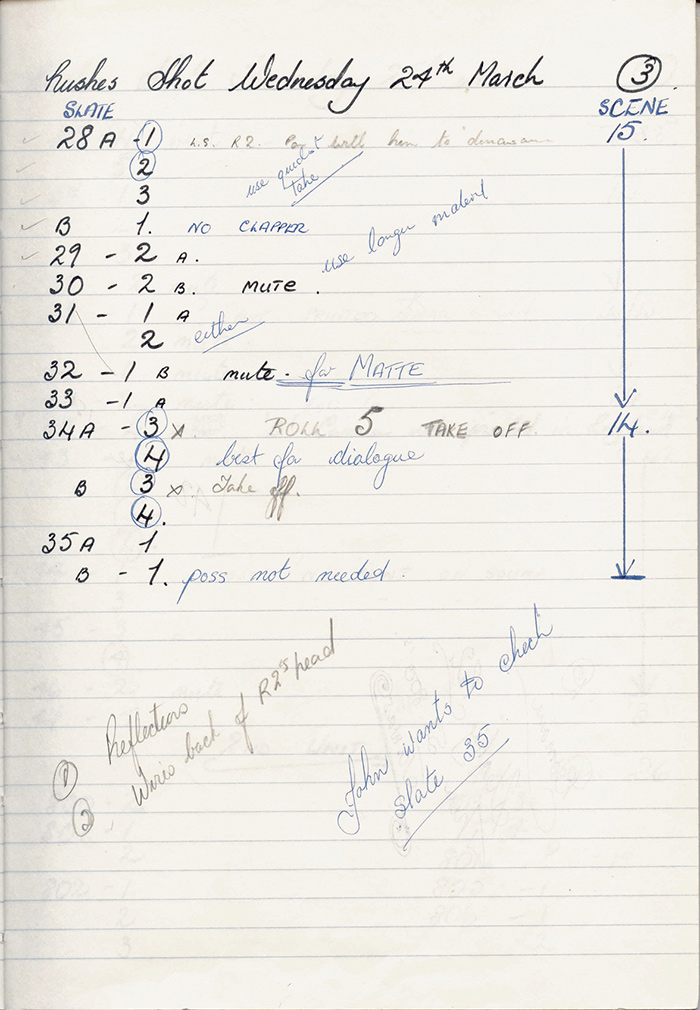 Rushes Shot Wednesday 24th March 3
SLATE SCENE
28A - 1 L.S. R2. Pan with him to 15.
2 use quickest
3 take
B 1. NO CLAPPER
29 - 2 A. use longer material
30 - 2 B. MUTE.
31 - 1 A
2 either
32 - 1 B mute. for MATTE
33 - 1 A
34A - 3 x ROLL 5 TAKE OFF 14.
4 best for dialogue
B 3 x. Take off.
4.
35A 1
B - 1. poss not needed.
1 Reflections
2. Wires back of R2's head
John wants to check
slate 35